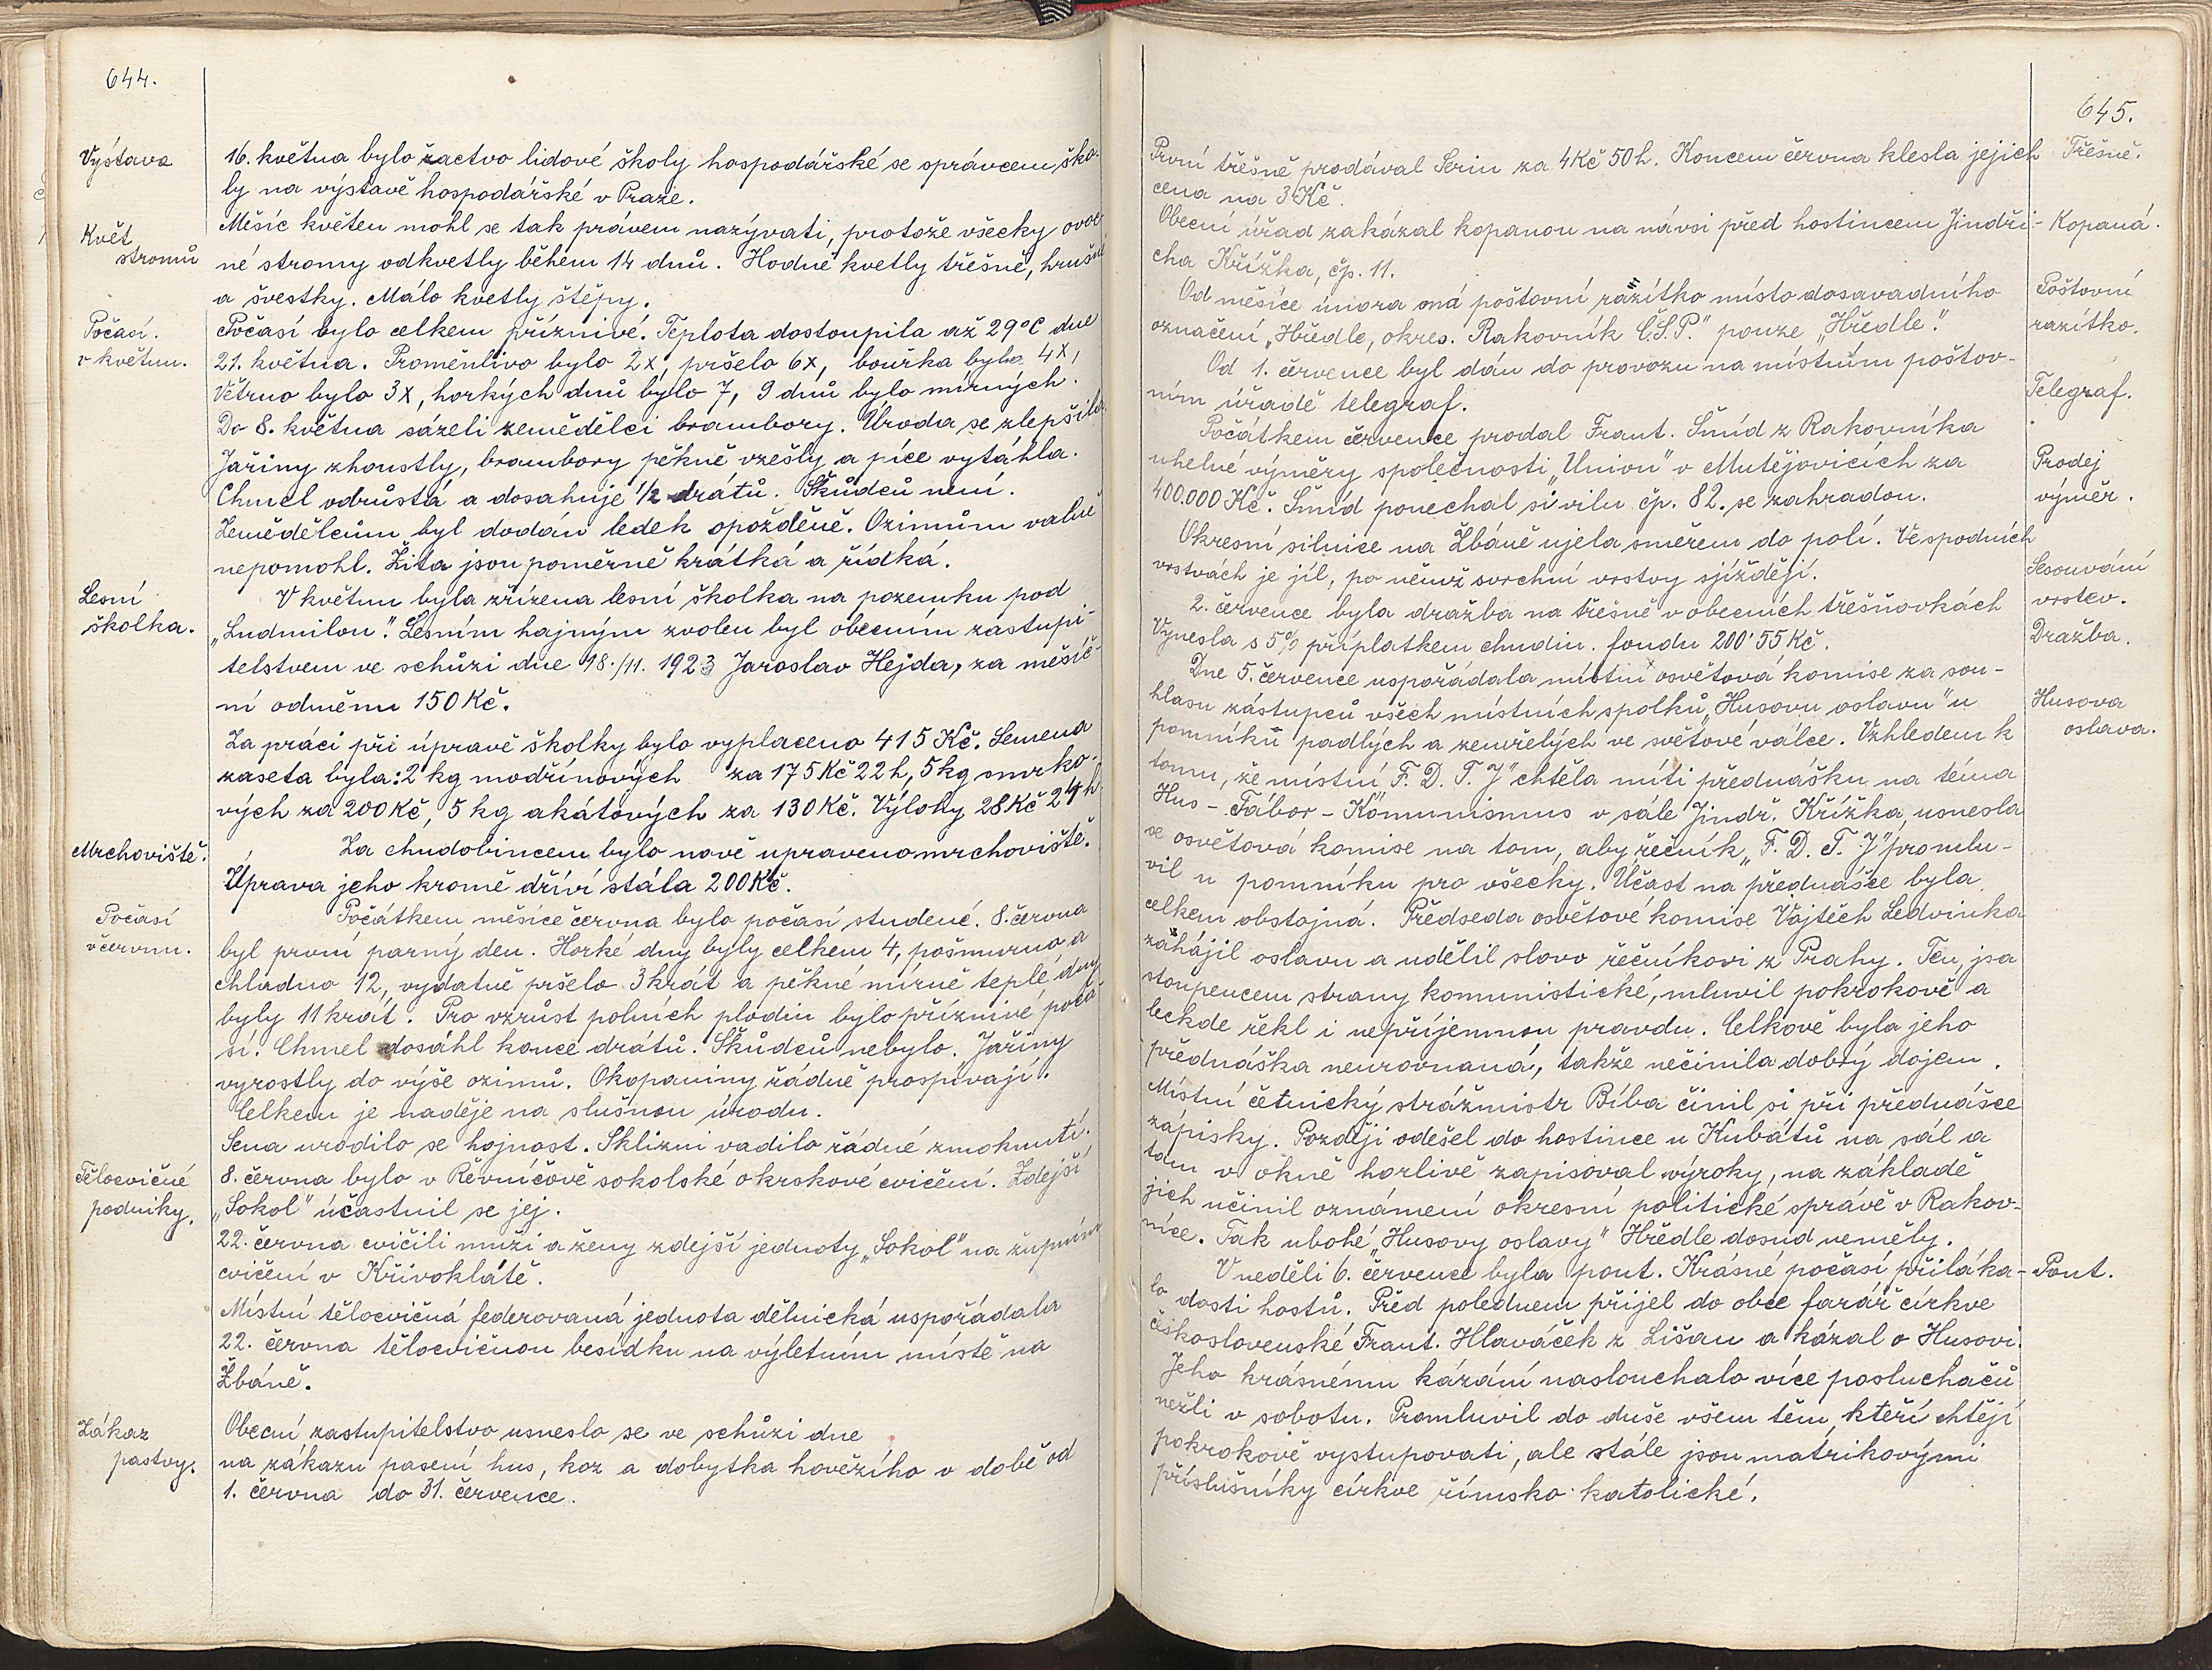 644.
Výstava
16. května bylo žactvo lidové školy hospodářské se správcem ško-
ly na výstavě hospodářské v Praze.
Květ
stromů
Měsíc květen mohl se tak právem nazývati, protože všecky ovoc
né stromy odkvetly během 14 dnů. Hodně kvetly třešně, hrušně
a švestky. Málo kvetly štěpy.
Počasí.
v květnu.
Počasí bylo celkem příznivé. Teplota dostoupila až 29°C dne
21. května. Proměnlivo bylo 2x, pršelo 6x, bouřka byla 4x,
Větrno bylo 3x, horkých dnů bylo 7, 9 dnů bylo mírných.
Do 8. května sázeli zemědělci brambory. Úroda se zlepšila.
Jařiny zhoustly, brambory pěkně vzešly a píce vytáhla.
Chmel odrůstá a dosahuje 1/2 drátů. Škůdců není.
Zemědělcům byl dodán ledek opožděně. Ozimům valně
nepomohl. Žita jsou poměrně krátká a řídká.
Lesní
školka.
V květnu byla zřízena lesní školka na pozemku pod
„Ludmilou". Lesním hajným zvolen byl obecním zastupi-
telstvem ve schůzi dne 18./11. 1923 Jaroslav Hejda, za měsíč-
ní odměnu 150 Kč.
Za práci při úpravě školky bylo vyplaceno 415 Kč. Semena
zaseta byla: 2 kg modřínových za 175 Kč 22 h, 5 kg smrko-
vých za 200 Kč, 5 kg akátových za 130 Kč. Výlohy 28 Kč 24 h
Mrchoviště.
Za chudobincem bylo nově upraveno mrchoviště.
Úprava jeho kromě dříví stála 200 Kč.
Počasí
v červnu.
Počátkem měsíce června bylo počasí studené. 8. června
byl první parný den. Horké dny byly celkem 4, pošmurno a
chladno 12, vydatně pršelo 3 krát a pěkné mírně teplé dny
byly 11 krát. Pro vzrůst polních plodin bylo příznivé poča-
sí. Chmel dosáhl konce drátů. Škůdců nebylo. Jařiny
vyrostly do výše ozimů. Okopaniny řádně prospívají.
Celkem je naděje na slušnou úrodu.
Sena urodilo se hojnost. Sklizni vadilo řádné zmoknutí.
Tělocvičné
podniky.
8. června bylo v Řevničově sokolské okrskové cvičení. Zdejší
„Sokol" účastnil se jej.
22. června cvičili muži a ženy zdejší jednoty „Sokol" na župním
cvičení v Křivoklátě.
Místní tělocvičná federovaná jednota dělnická uspořádala
22. června tělocvičnou besídku na výletním místě na
Žbáně.
Zákaz
pastvy.
Obecní zastupitelstvo usneslo se ve schůzi dne
na zákazu pasení hus, koz a dobytka hovězího v době od
1. června do 31. července.
645.
První třešně prodával Serin za 4 Kč 50 h. Koncem června klesla jejich
Třešně.
cena na 3 Kč.
Obecní úřad zakázal kopanou na návsi před hostincem Jindři-
Kopaná.
cha Křížka, čp. 11.
Od měsíce února má poštovní razítko místo dosavadního
Poštovní
označení „Hředle, okres. Rakovník Č.S.P." pouze „Hředle".
razítko.
Od 1. července byl dán do provozu na místním poštov-
Telegraf.
ním úřadě telegraf.
Počátkem července prodal Frant. Šmíd z Rakovníka
uhelné výměry společnosti „Union" v Mutějovicích za
Prodej
400.000 Kč. Šmíd ponechal si vilu čp. 82. se zahradou.
výměr.
Okresní silnice na Žbáně ujela směrem do polí. Ve spodních
vrstvách je jíl, po němž svrchní vrstvy sjíždějí.
Sesouvání
2. července byla dražba na třešně v obecních třešňovkách
vrstev.
Vynesla s 5% příplatkem chudin. fondu 200'55 Kč.
Dražba.
Dne 5. července uspořádala místní osvětová komise za sou-
hlasu zástupců všech místních spolků „Husovu oslavu" u
Husova
pomníků padlých a zemřelých ve světové válce. Vzhledem k
oslava.
tomu, že místní „F. D. T. J" chtěla míti přednášku na téma
Hus - Tábor - Komunismus v sále Jindř. Křížka, usnesla
se osvětová komise na tom, aby řečník „F. D. T. J" promlu-
vil u pomníku pro všecky. Účast na přednášce byla
celkem obstojná. Předseda osvětové komise Vojtěch Ledvinka
zahájil oslavu a udělil slovo řečníkovi z Prahy. Ten, jsa
stoupencem strany komunistické, mluvil pokrokově a
leckde řekl i nepříjemnou pravdu. Celkově byla jeho
přednáška neurovnaná, takže nečinila dobrý dojem.
Místní četnický strážmistr Bíba činil si při přednášce
zápisky. Později odešel do hostince u Kubátů na sál a
tam v okně horlivě zapisoval výroky, na základě
jich učinil oznámení okresní politické správě v Rakov-
níce. Tak ubohé „Husovy oslavy" Hředle dosud neměly.
V neděli 6. července byla pout. Krásné počasí přiláka-
Pout.
lo dosti hostů. Před polednem přijel do obce farář církve
československé Frant. Hlaváček z Lišan a kázal o Husovi.
Jeho krásnému kázání naslouchalo více posluchačů
nežli v sobotu. Promluvil do duše všem těm, kteří chtějí
pokrokově vystupovati, ale stále jsou matrikovými
příslušníky církve římsko-katolické.